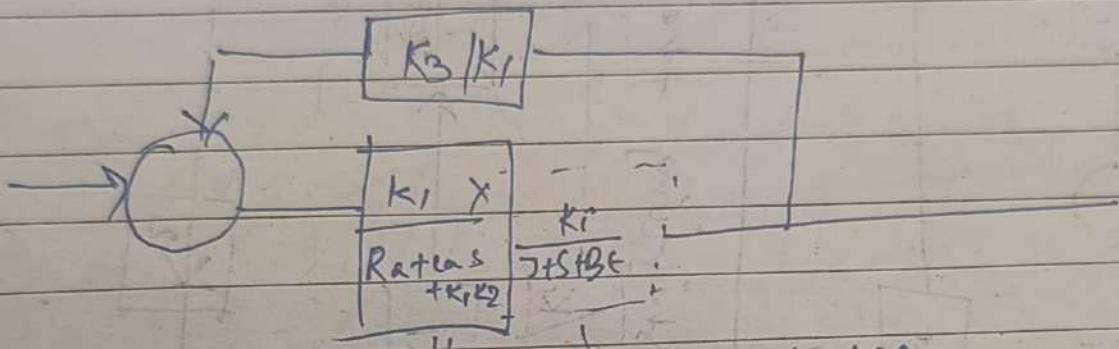 K3/K1
K1 x
Ra+Las
+K1K2
Ki
J+S+Bt